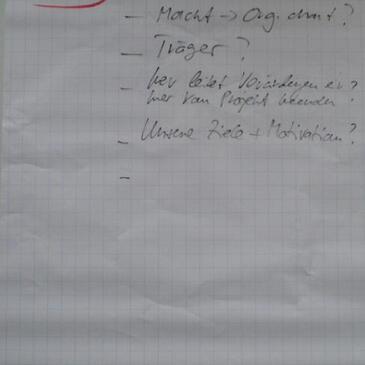 – Macht → Org. chart?
– Träger?
– Wer leitet Veränderungen ein?
wer kann Projekt beenden?
– Unsere Ziele + Motivation?
–